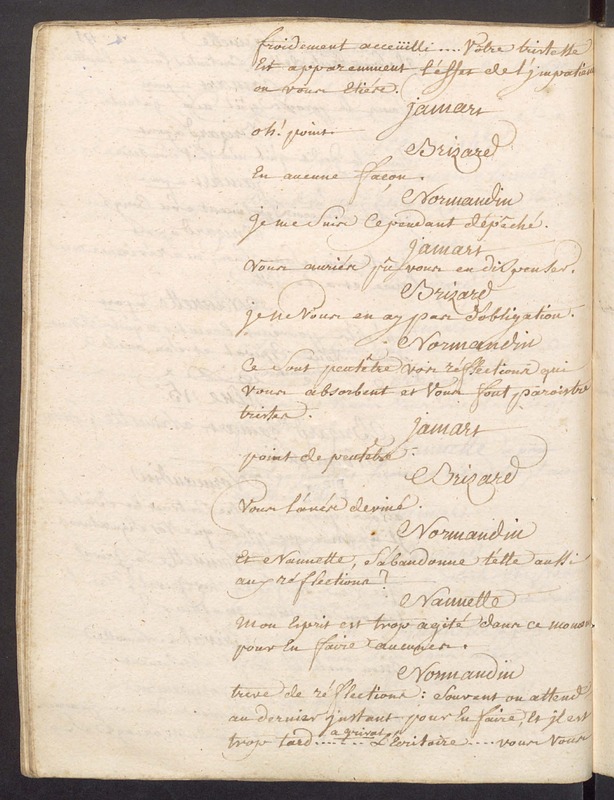 froidement acceüilli .... Votre tristesse
Est apparemment l'effet de l'impatience
ou vous Etiés.
jamart
oh! point.
Brizard
En aucune façon.
Normandin
je me Suis Cependant dépêché.
jamart
Vous auriés pû vous en dispenser.
Brizard
je ne Vous en ay pas d'obligation.
Normandin
Ce Sont peutêtre vos réflections qui
vous absorbent et Vous font paroistre
tristes.
jamart
point de peutêtre.
Brizard
Vous l'avés deviné.
Normandin
Et Nannette, S'abandonne t'elle aussi
aux réflections?
Nannette
Mon Esprit est trop agité dans ce moment
pour En faire aucunes.
Normandin
treve de réflections: Souvent on attend
au dernier jnstant pour En faire, Et jl est
trop tard ...... L'Ecritoire .... vous Vous